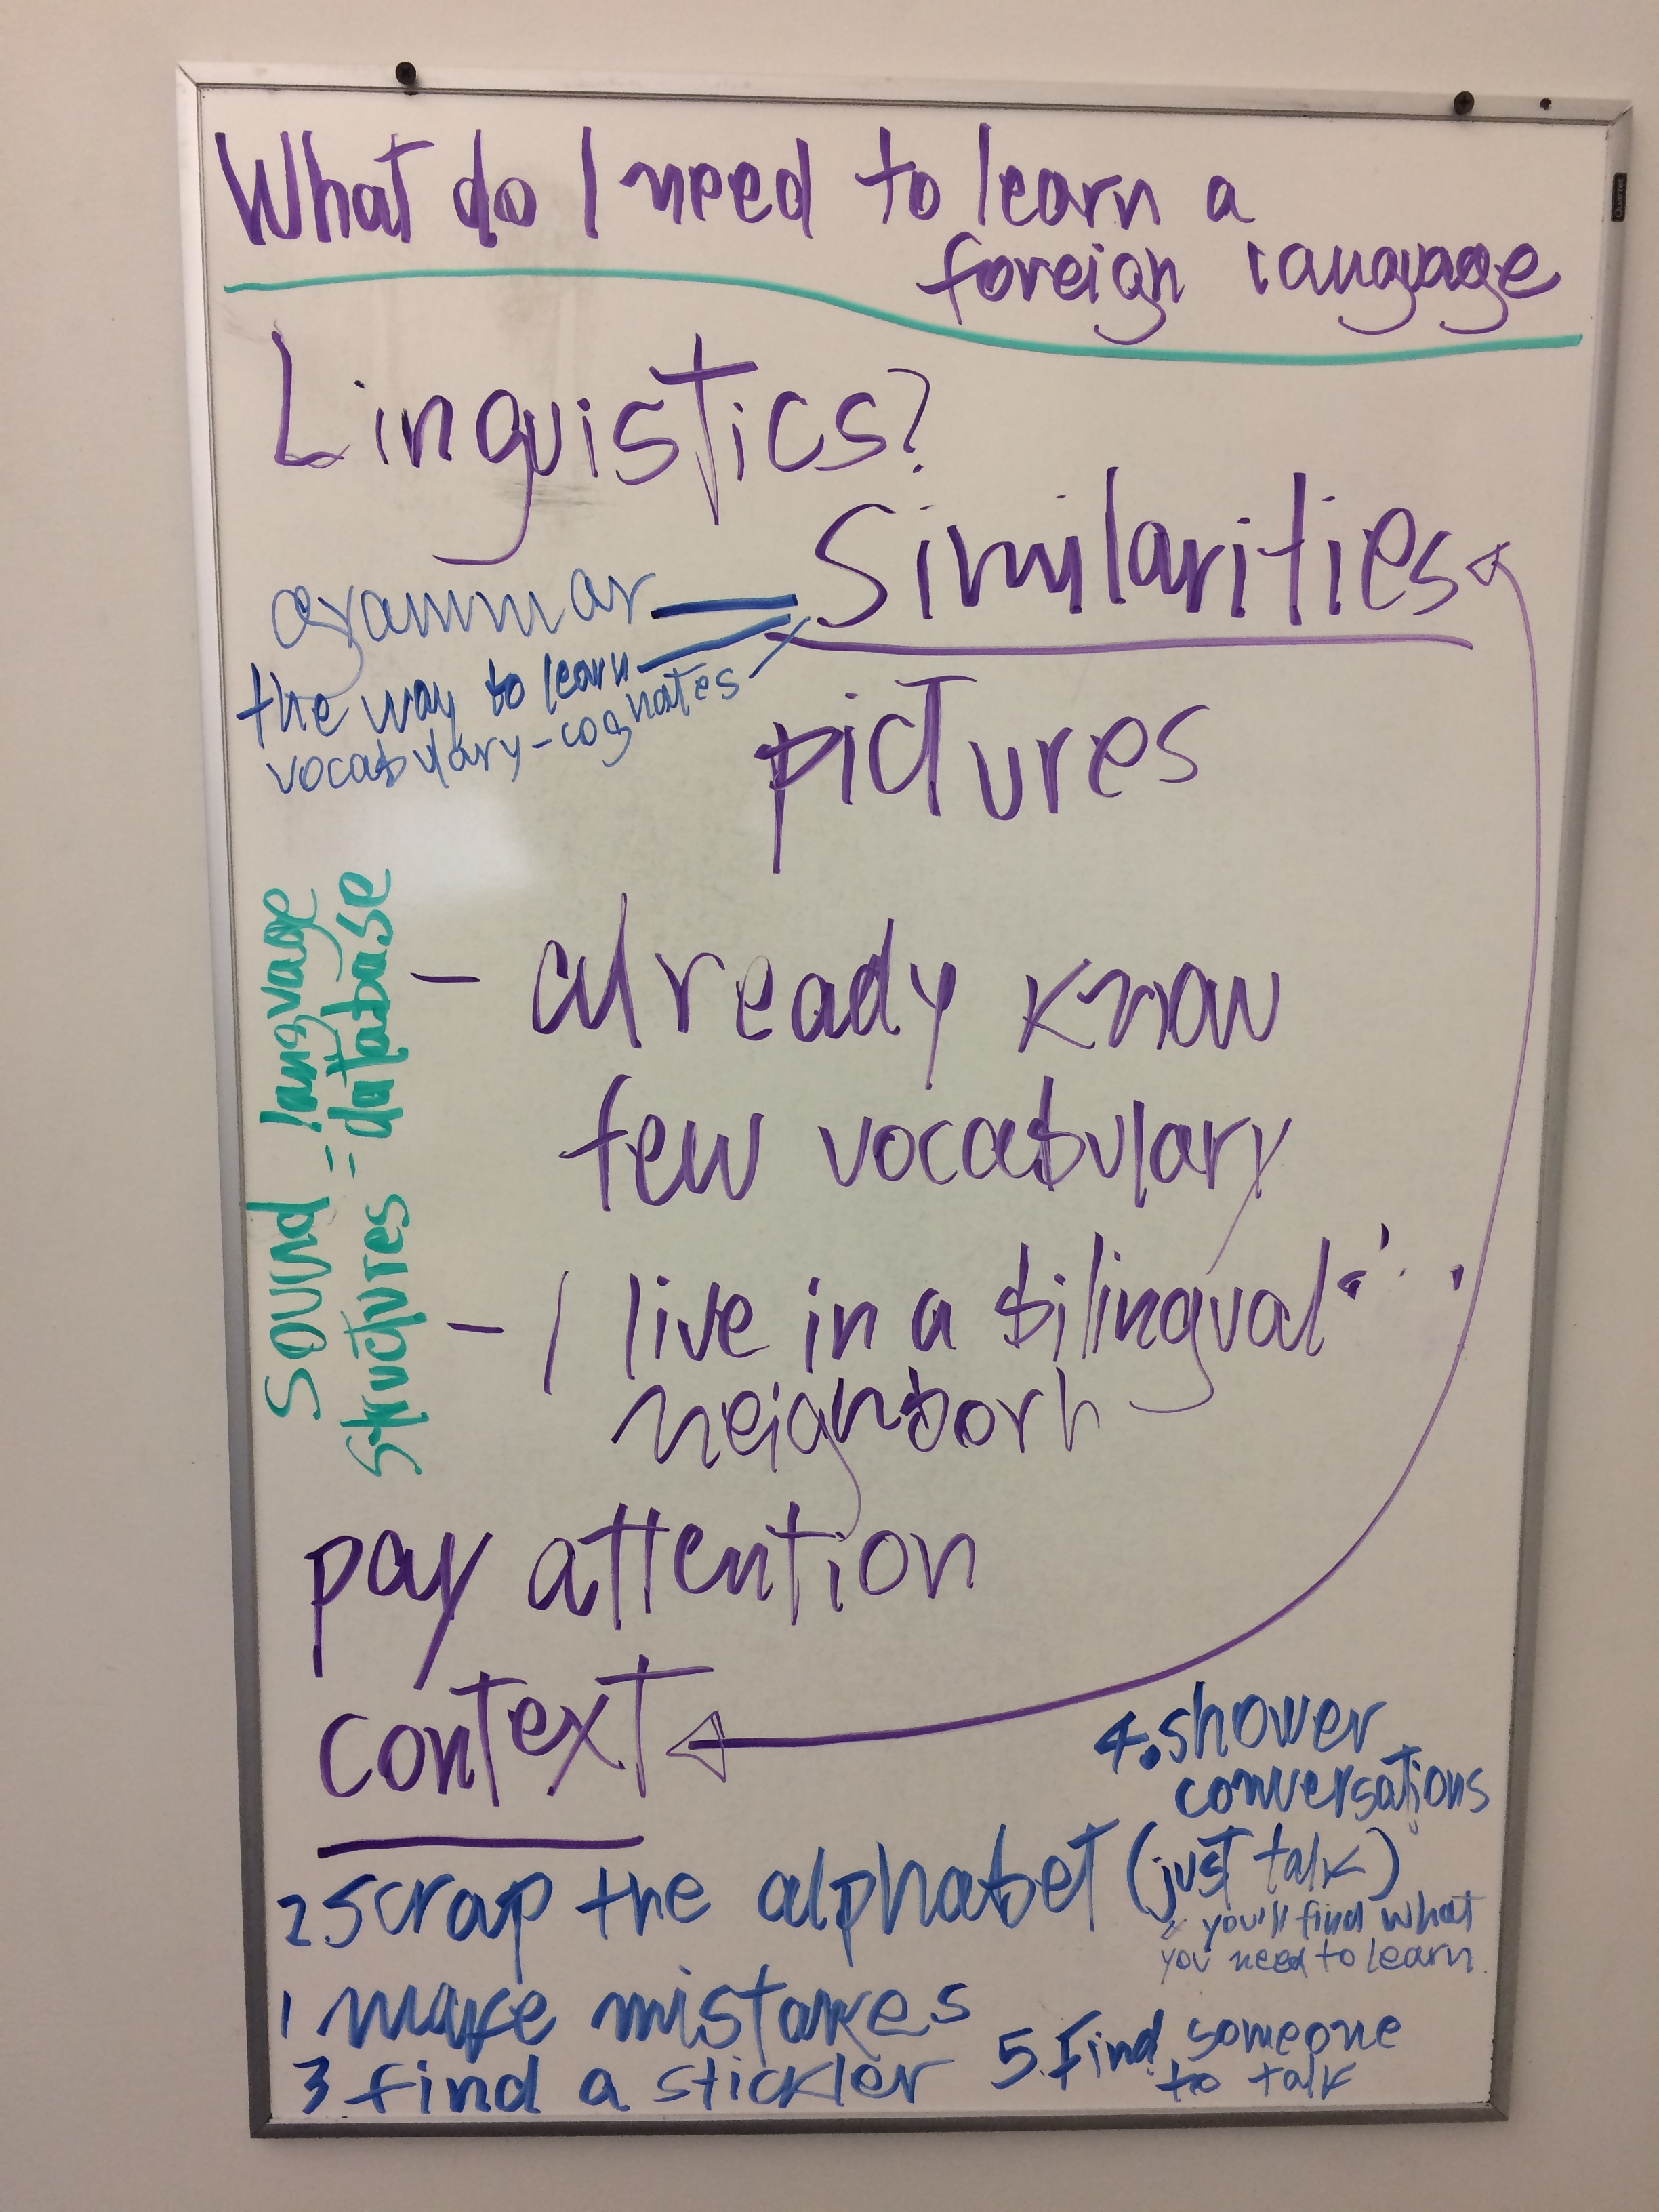 What do I need to learn a
foreign language
Linguistics?
Similarities
grammar
the way to learn
vocabulary-cognates
pictures
sound = language
structures = database
- already know
few vocabulary
- I live in a bilingual
neighborh
pay attention
context
4. shower
conversations
2 scrap the alphabet (just talk)
& you'll find what
you need to learn.
1 make mistakes
3 find a stickler
5. Find someone
to talk
Quartet